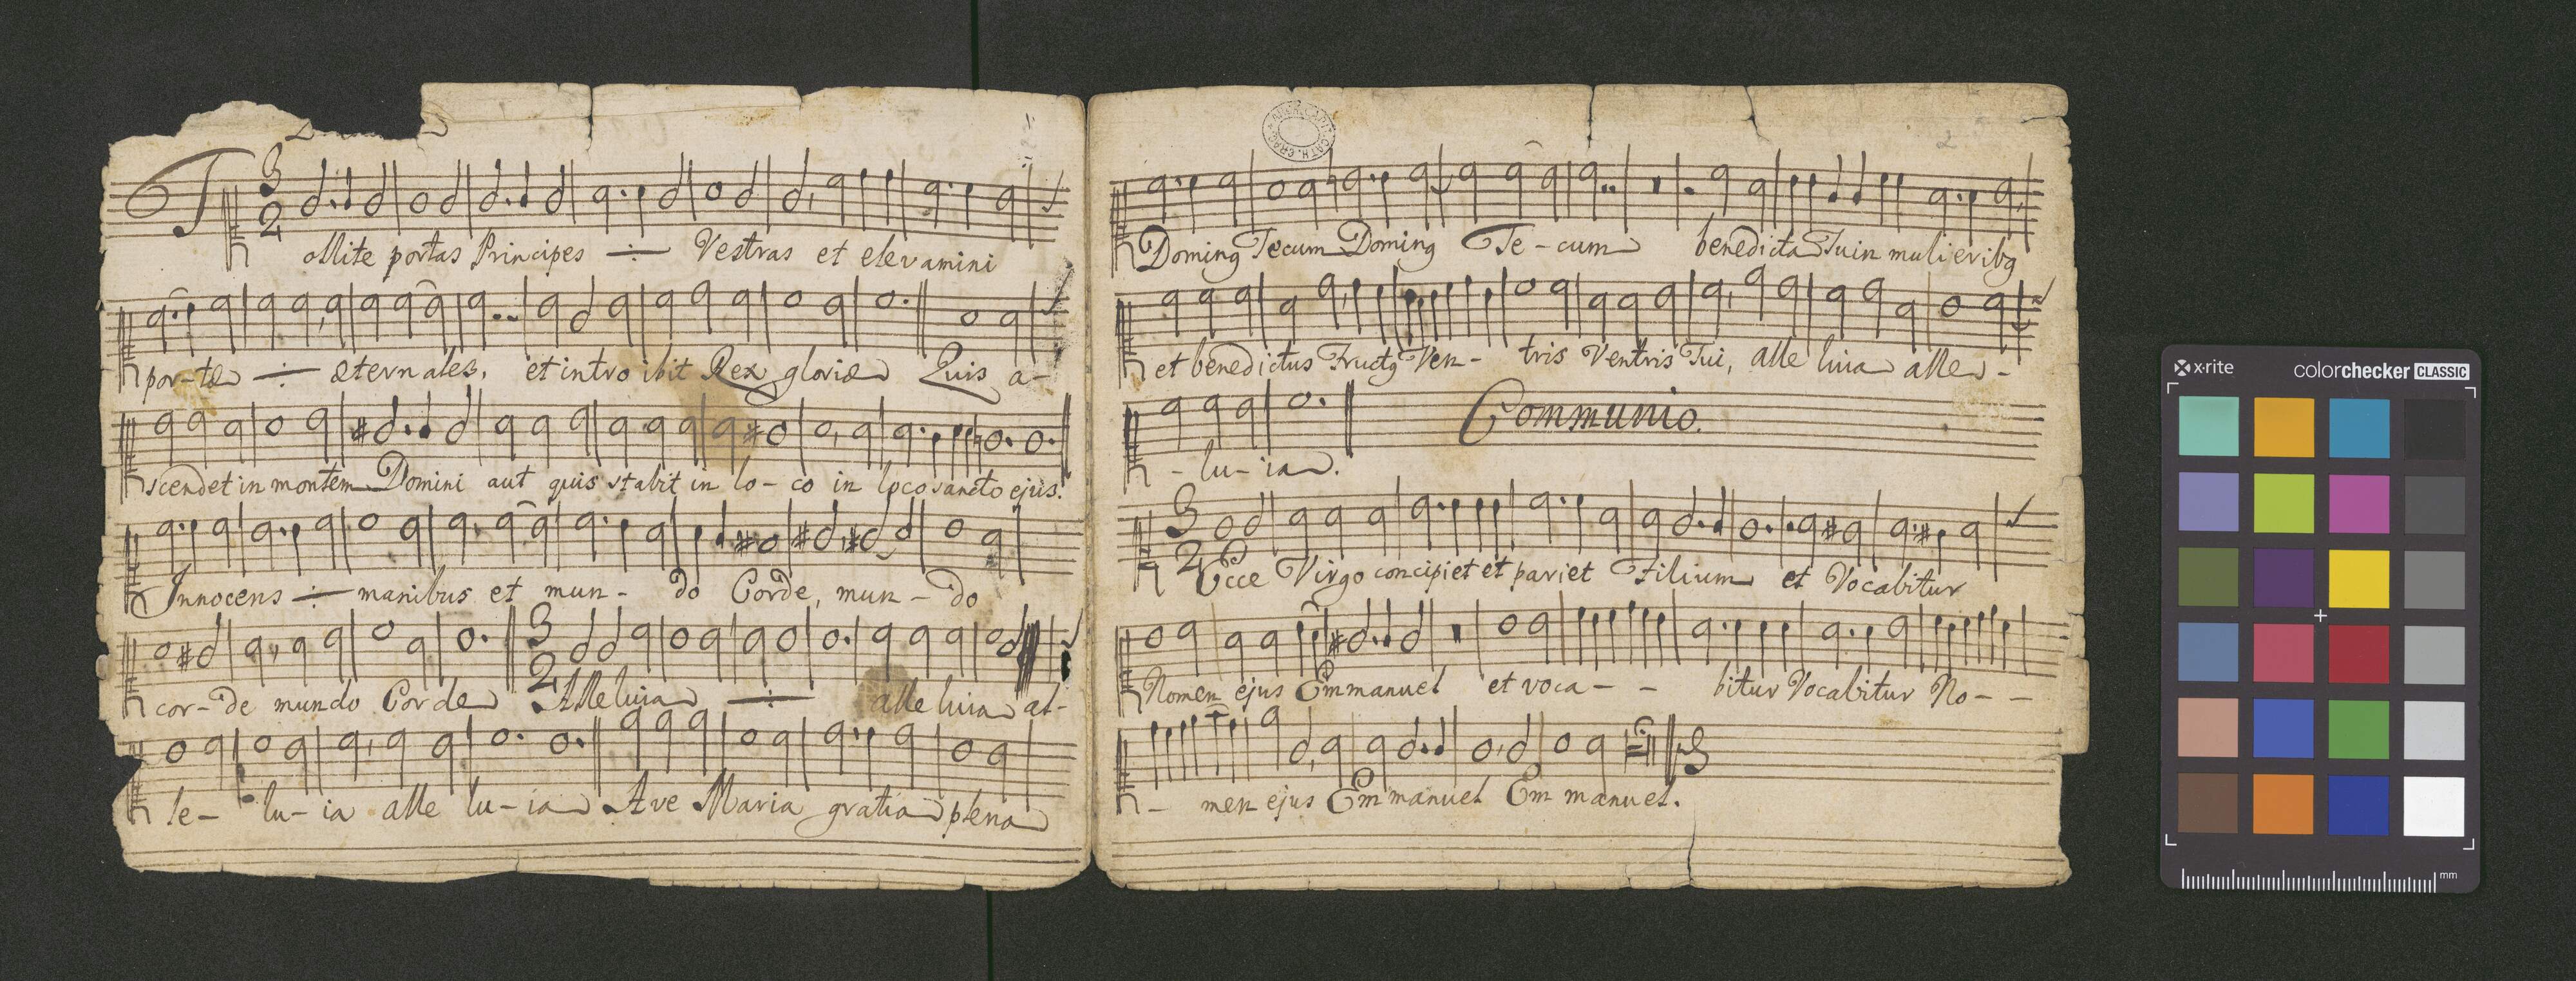 Tollite portas Principes ÷ Vestras et elevamini
por-tæ ÷ æternales, et introibit Rex gloriæ Quis a-
scendet in montem Domini aut quis stabit in lo-co in loco sancto ejus.
Innocens ÷ manibus et mun- do Corde, mun-do
cor-de mundo Corde Alleluia ÷ alleluia al-
le- lu-ia alle lu-ia Ave Maria gratia plena
2
Doming Tecum Doming Te-cum benedicta Tu in mulieribg
et benedictus Fructg Ven- tris Ventris Tui, alle luia alle-
-lu-ia. Communio.
3 2
Ecce Virgo concipiet et pariet Filium et Vocabitur
Nomen ejus Emmanuel et voca- - bitur Vocabitur No- -
- men ejus Emmanuel Em manuel.
x-rite colorchecker CLASSIC
mm